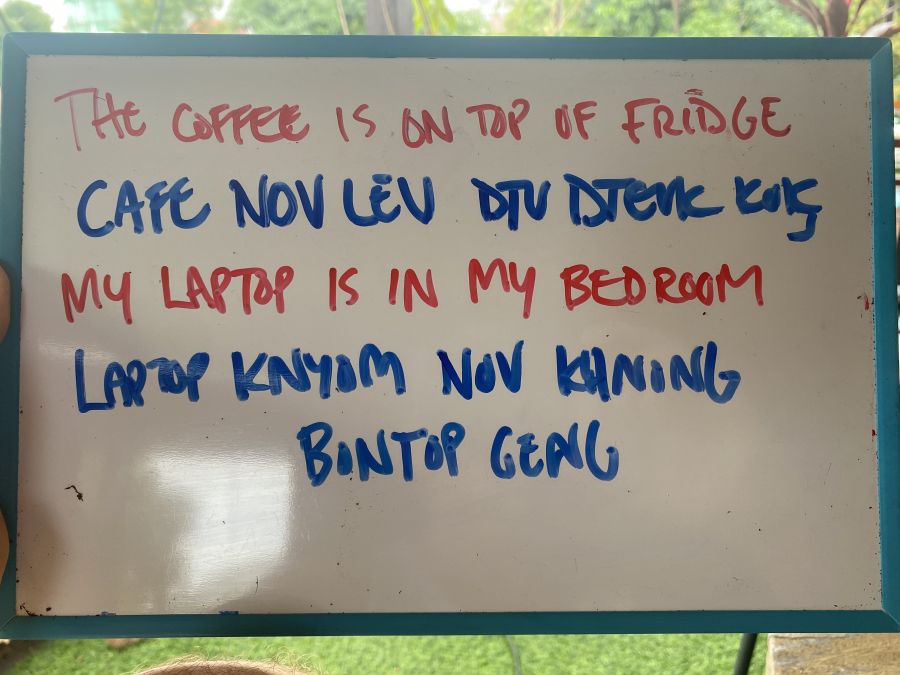 THE COFFEE IS ON TOP OF FRIDGE
CAFE NOV LEV DTU DTEUK KOK
MY LAPTOP IS IN MY BEDROOM
LAPTOP KNYOM NOV KHNONG
BONTOP GENG